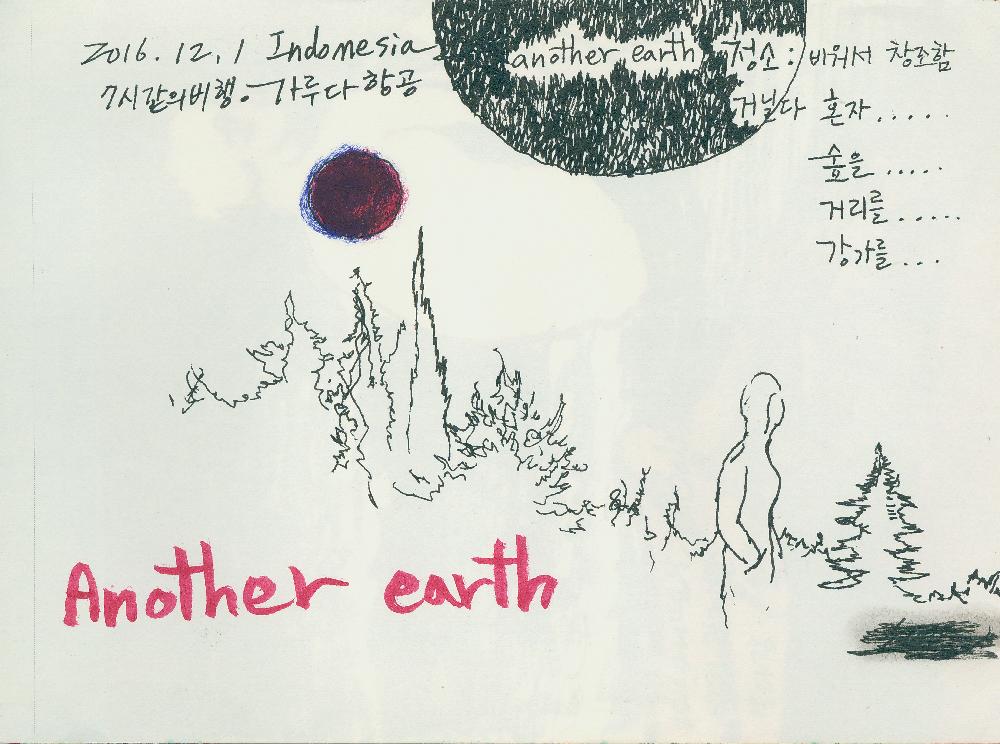 2016.12.1 Indonesia
7시간의비행. 가루다항공
another earth
청소: 비워서 창조함
거닐다 혼자.....
숲을.....
거리를.....
강가를...
Another earth